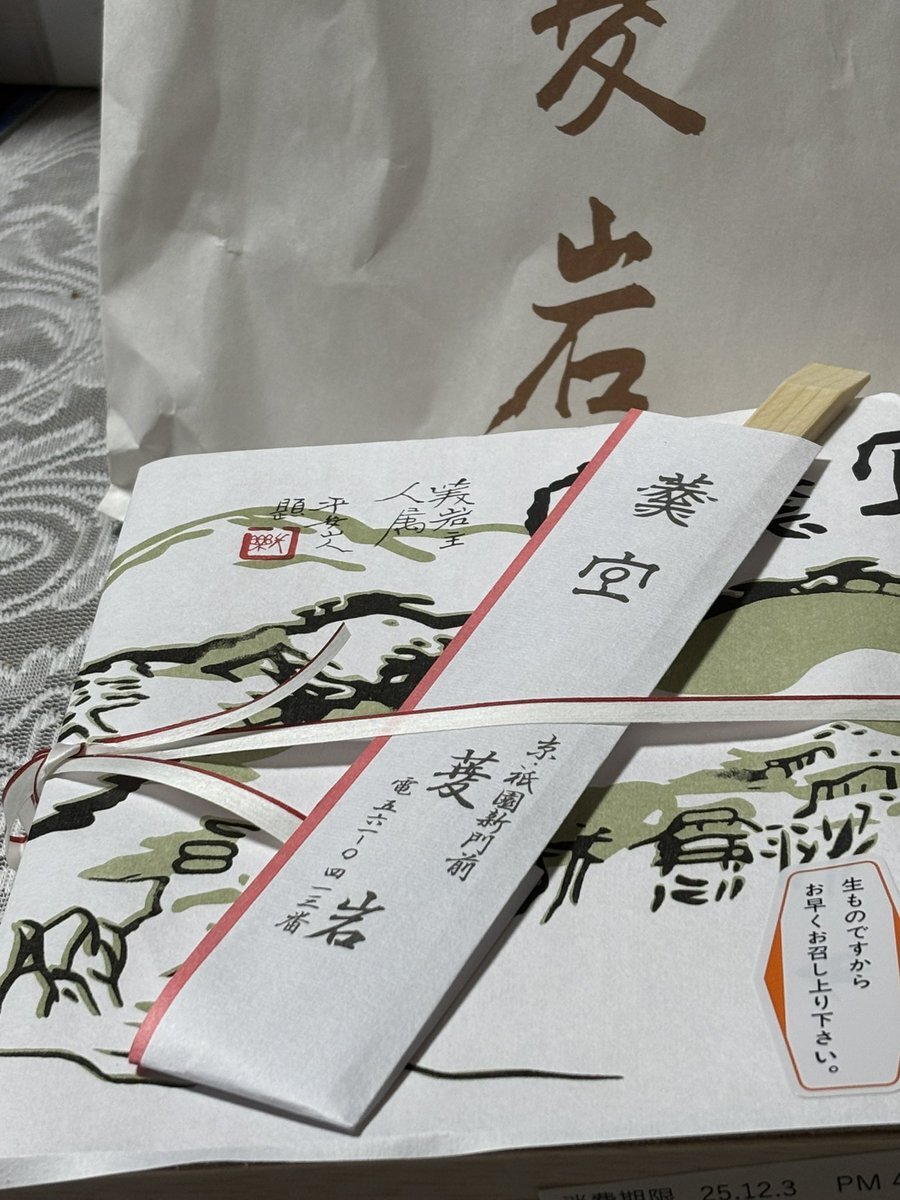 菱岩
菱岩主
人属
平安山人
題
京・祇園新門前
菱岩
電五六一〇四一三番
生ものですから
お早くお召し上り下さい。
消費期限 25.12.3 PM 4